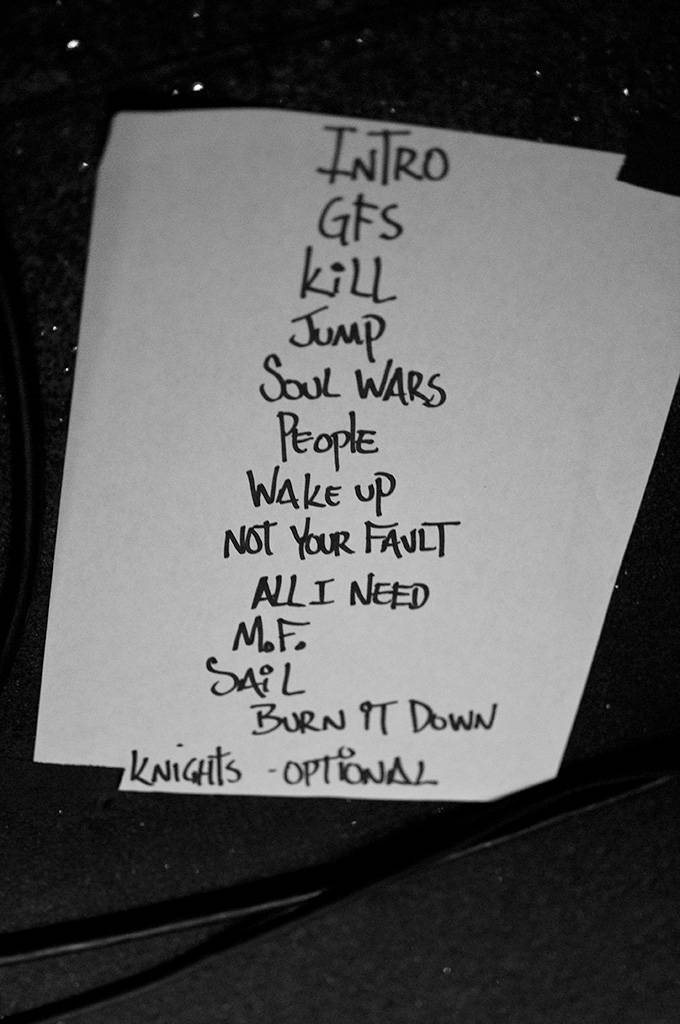 INTRO
GFS
KiLL
JUMP
SOUL WARS
PEOPLE
WAKE UP
NOT YOUR FAULT
ALL I NEED
M.F.
SAiL
BURN IT DOWN
KNiGHTS - OPTiONAL